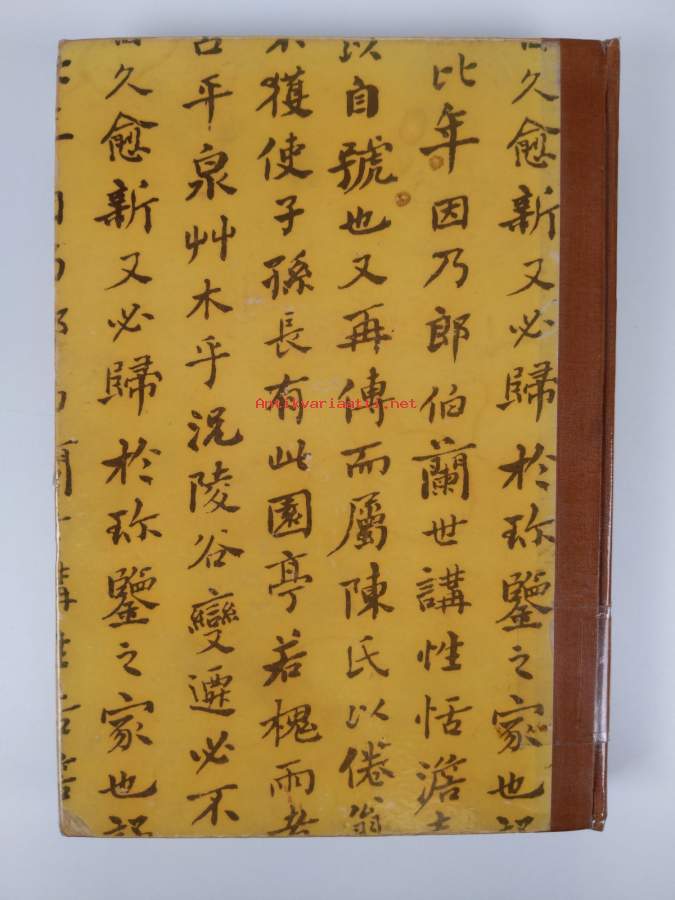 久愈新又必歸於珎鑒之家也
比年因乃郎伯蘭世講性恬澹
以自號也又再傳而屬陳氏以倦翁
獲使子孫長有此園亭若槐雨
平泉艸木乎況陵谷變遷必不
久愈新又必歸於珎鑒之家也
Antikvariaatti.net